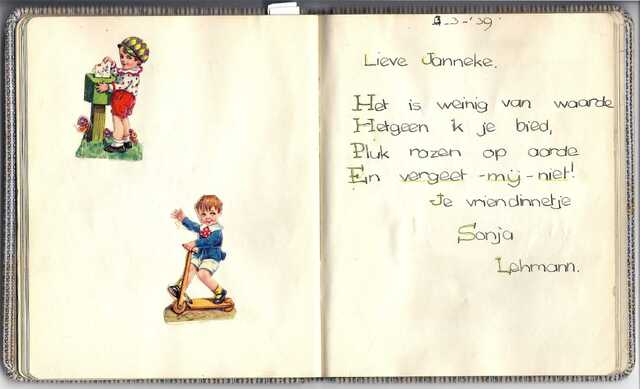 3-'39
Lieve Janneke.
Het is weinig van waarde
Hetgeen ik je bied,
Pluk rozen op aarde
En vergeet-mij-niet!
Je vriendinnetje
Sonja
Lehmann.